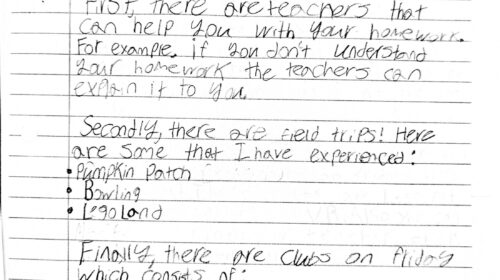 First, there are teachers that
can help you with your homework.
For example, if you don't understand
your homework the teachers can
explain it to you.
Secondly, there are field trips! Here
are some that I have experienced:
• Pumpkin Patch
• Bowling
• Legoland
Finally, there are clubs on friday
which consists of: